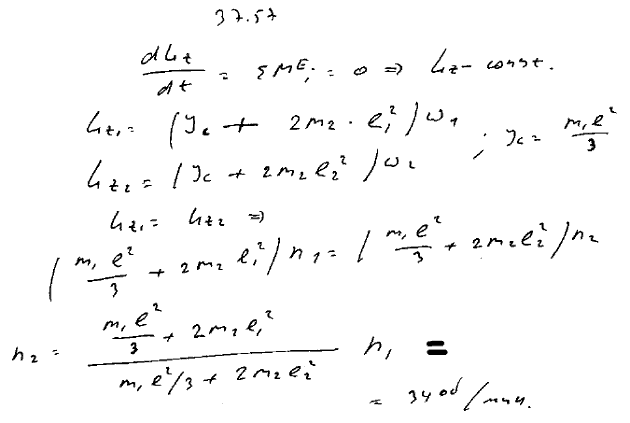 37.57
dLz/dt = ΣM^E_i = 0 => Lz - const.
Lz₁ = (Jc + 2m₂ · l₁²)ω₁ ; Jc = m₁l²/3
Lz₂ = (Jc + 2m₂l₂²)ω₂
Lz₁ = Lz₂ =>
(m₁l²/3 + 2m₂ l₁²)n₁ = (m₁l²/3 + 2m₂l₂²)n₂
n₂ = (m₁l²/3 + 2m₂l₁²)/(m₁l²/3 + 2m₂l₂²) n₁ =
= 34 об/мин.